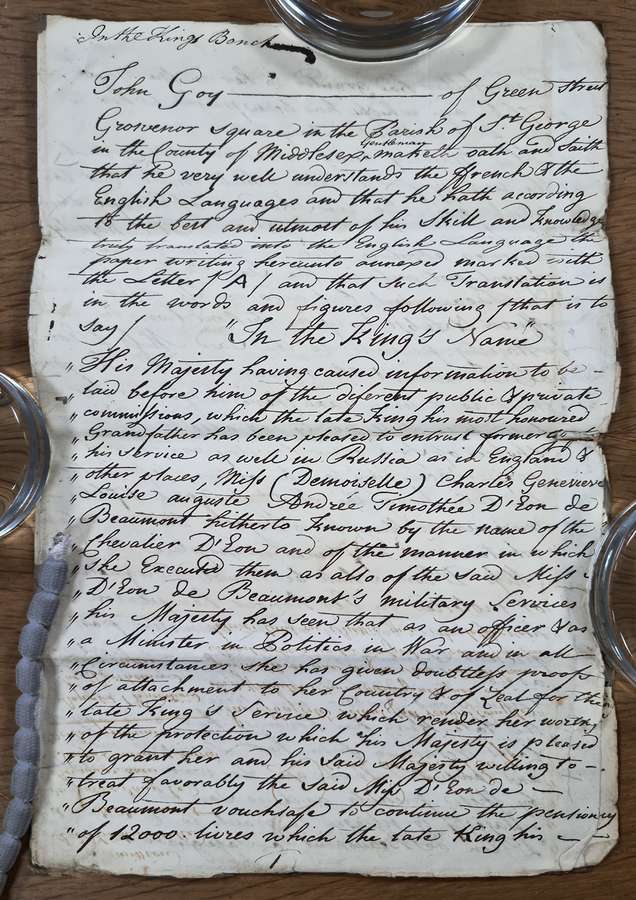 In the Kings Bench
John Goy — of Green Street
Grosvenor Square in the Parish of St. George
in the County of Middlesex, Gentleman maketh oath and saith
that he very well understands the ffrench & the
English Languages and that he hath according
to the best and utmost of his Skill and knowledge
truly translated into the English Language the
paper writing hereunto annexed marked with
the Letter /A/ and that such Translation is
in the words and figures following /that is to
say/ "In the King's Name"
" His Majesty having caused information to be –
" laid before him of the diferent public & private
" commissions, which the late King his most honoured
" Grandfather has been pleased to entrust formerly
" his service as well in Russia as in England &
" other places, Miss (Demoiselle) Charles Genevieve
" Louise auguste Andrée Timothée D'Eon de
" Beaumont hitherto known by the name of the
" Chevalier D'Eon and of the manner in which
" she Executed them as also of the said Miss
" D'Eon de Beaumont's military Services
" his Majesty has seen that as an officer & as
" a Minister in Politics in War and in all
" Circumstances she has given doubtless proofs
" of attachment to her Country & of Zeal for the
" late King's Service which render her worthy
" of the protection which his Majesty is pleased
" to grant her and his said Majesty willing to –
" treat favorably the said Miss D'Eon de –
" Beaumont vouchsafe to continue the pension
" of 12000 livres which the late King his –
1